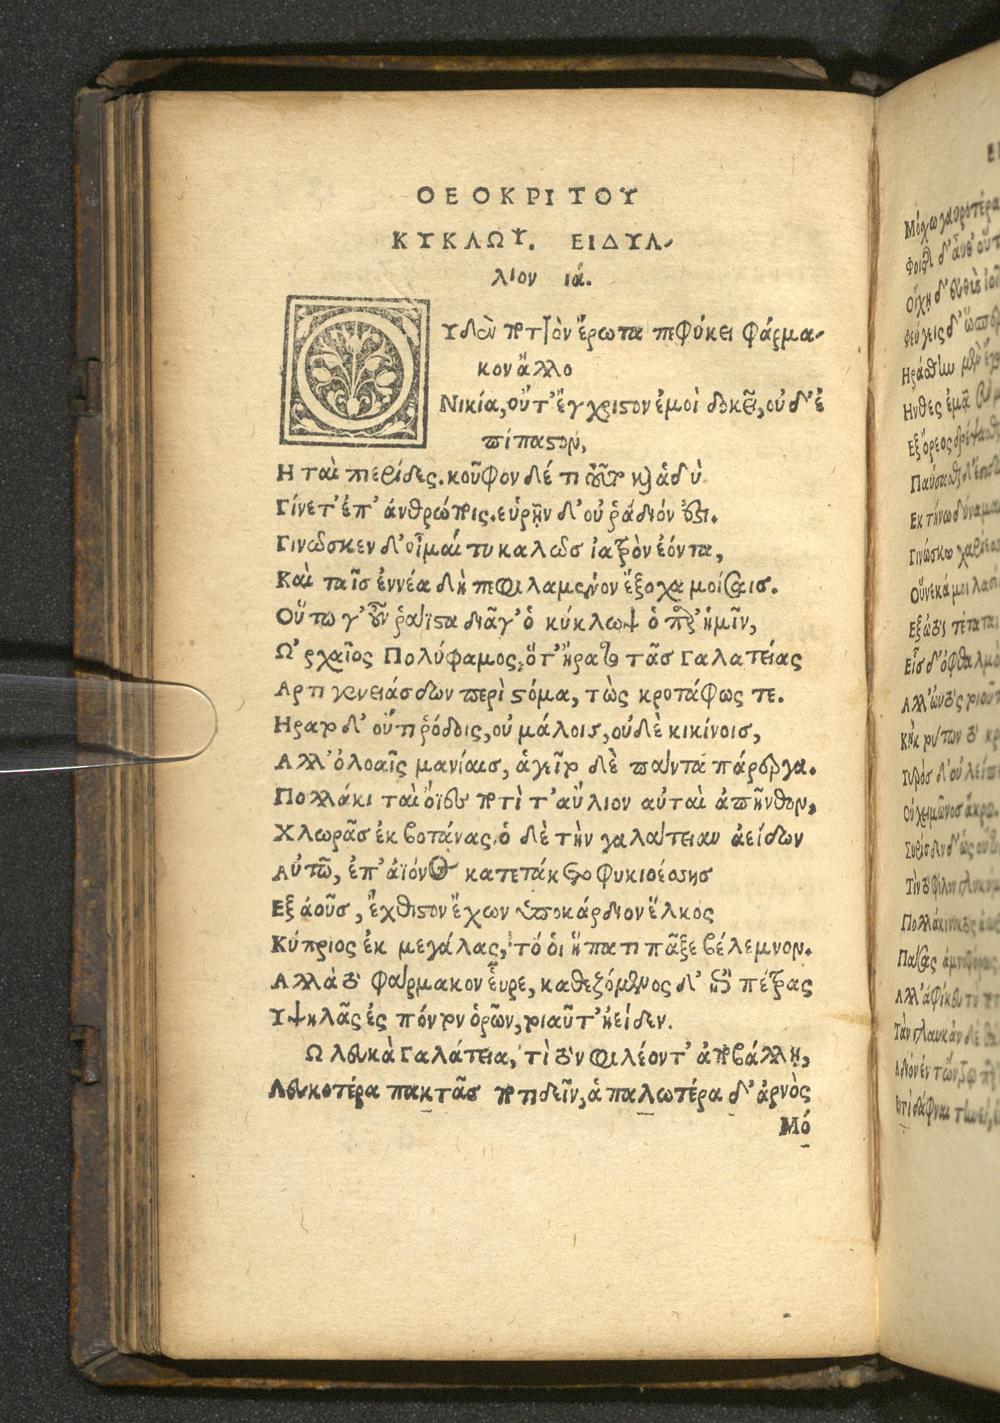 ΘΕΟΚΡΙΤΟΥ
ΚΥΚΛΩΨ. ΕΙΔΥΛ-
λιον ιά.
ΟΥδὲν ποττὸν ἔρωτα πεφύκει φάρμα-
κον ἄλλο
Νικία, οὔτ' ἔγχριστον ἐμοὶ δοκεῖ, οὐδ' ἐ
πίπαστον,
Η ταὶ πιερίδες. κοῦφον δέ τι τοῦτο καὶ ἁδὺ
Γίνετ' ἐπ' ἀνθρώποις. εὑρῆν δ' οὐ ῥᾴδιόν ἐστι.
Γινώσκεν δ' οἶμαί τυ καλῶς ἰατρὸν ἐόντα,
Καὶ ταῖς ἐννέα δὴ πεφιλαμένον ἔξοχα μοίσαις.
Οὕτω γ' οὖν ῥάϊστα διᾶγ' ὁ κύκλωψ ὁ παρ' ἡμῖν,
Ω' ρχαῖος Πολύφαμος, ὅτ' ἤρατο τᾶς Γαλατείας
Αρτι γενειάσδων περὶ στόμα, τὼς κροτάφως τε.
Ηρατο δ' οὔτι ῥόδοις, οὐ μάλοις, οὐδὲ κικίνοις,
Αλλ' ὀλοαῖς μανίαις, ἁγεῖτο δὲ πάντα πάρεργα.
Πολλάκι ταὶ ὄϊες ποτὶ τ' αὔλιον αὐταὶ ἀπῆνθον,
Χλωρᾶς ἐκ βοτάνας. ὁ δὲ τὴν γαλάτειαν ἀείδων
Αὐτῶ, ἐπ' ἀϊόνος κατετάκετο φυκιοέσσης
Εξ ἀοῦς, ἔχθιστον ἔχων ὑποκάρδιον ἕλκος
Κύπριος ἐκ μεγάλας, τό ὁι ἥπατι πᾶξε βέλεμνον.
Αλλὰ τὸ φάρμακον εὗρε, καθεζόμενος δ' ἐπὶ πέτρας
Υψηλᾶς ἐς πόντον ὁρῶν, τοιαῦτ' ἤειδεν.
Ω λευκὰ Γαλάτεια, τὶ τὸν φιλέοντ' ἀποβάλλῃ,
Λευκοτέρα πακτᾶς ποτιδεῖν, ἁπαλωτέρα δ' ἀρνὸς
Μό